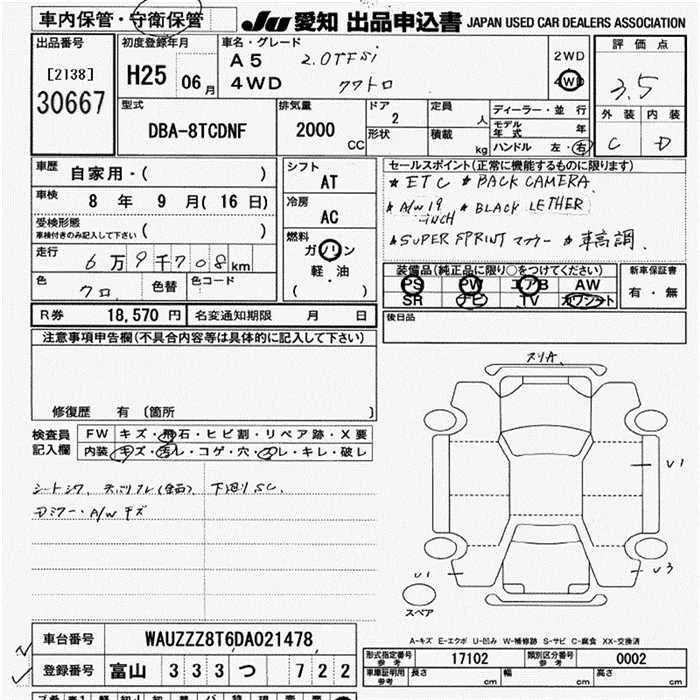 車内保管・守衛保管
JU 愛知 出品申込書 JAPAN USED CAR DEALERS ASSOCIATION
出品番号
[2138]
30667
初度登録年月
H25 06月
車名・グレード
A5 2.0TFSi
4WD クワトロ
2WD
4WD
評価点
3.5
外装 内装
C D
型式
DBA-8TCDNF
排気量
2000 CC
ドア
2
形状
定員
人
積載
kg
ディーラー・並行
モデル年式 年
ハンドル 左・右
車歴
自家用・( )
車検
8年 9月(16日)
受検形態
車検付きのみ記入して下さい ( )
走行
6万9千708km
色 クロ 色替 色コード
シフト
AT
冷房
AC
燃料
ガソリン
軽・油
( )
セールスポイント(正常に機能するものに限ります)
★ETC ★BACK CAMERA
★A/W 19INCH ★BLACK LETHER
★SUPER SPRINT マフラー ★車高調
装備品(純正品に限り○をつけてください)
PS PW エアB AW
SR ナビ TV カワシート
新車保証書
有・無
後日品
R券 18,570円 名変通知期限 月 日
注意事項申告欄(不具合内容等は具体的に記入して下さい)
修復歴 有〔箇所 〕
検査員記入欄
FW キズ・飛石・ヒビ割・リペア跡・X要
内装 キズ・汚レ・コゲ・穴・スレ・キレ・破レ
シートシワ 下廻りSC
Dミラー・A/Wキズ
スリA
U1
U1
U3
スペア
A-キズ E-エクボ U-凹み W-補修跡 S-サビ C-腐食 XX-交換済
車台番号 WAUZZZ8T6DA021478
登録番号 富山 333 つ 722
形式指定番号 参考 17102 類別区分番号 参考 0002
車庫証明用 参考 長さ cm 幅 cm 高さ cm